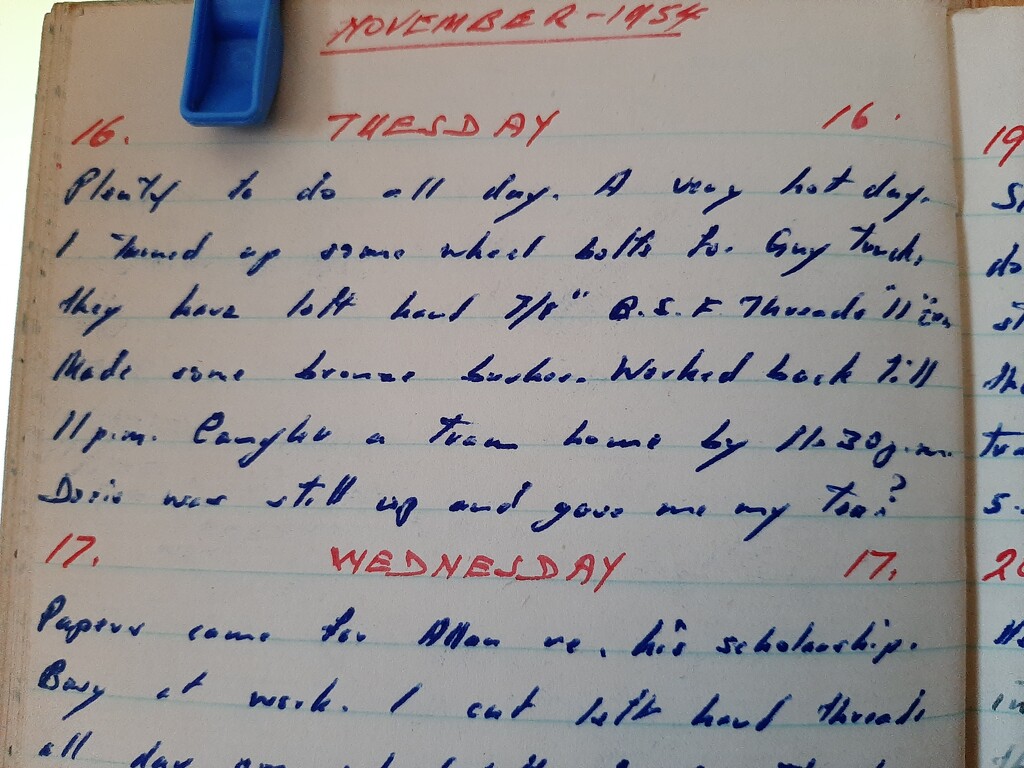 NOVEMBER - 1954
16. TUESDAY 16.
Plenty to do all day. A very hot day.
I turned up some wheel bolts for Guy truck,
they have left hand 7/8" B.S.F. Threads "11"
Made some bronze bushes. Worked back till
11 p.m. Caught a tram home by 11-30 p.m.
Doris was still up and gave me my tea?
17. WEDNESDAY 17.
Papers came for Allan re, his scholarship.
Busy at work. I cut left hand threads
all day
19
do
st
tra
5-
20
in